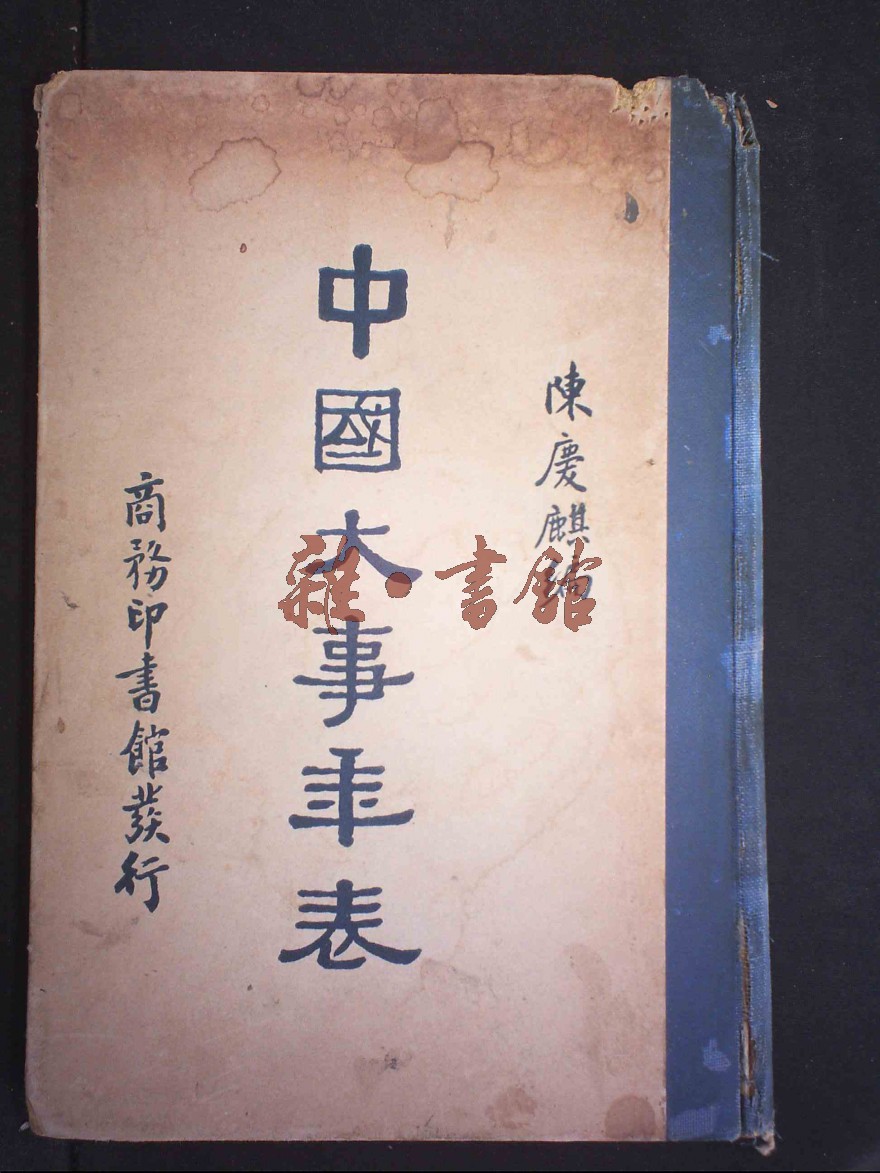 陳慶麒編
中國大事年表
商務印書館發行
雜·書館